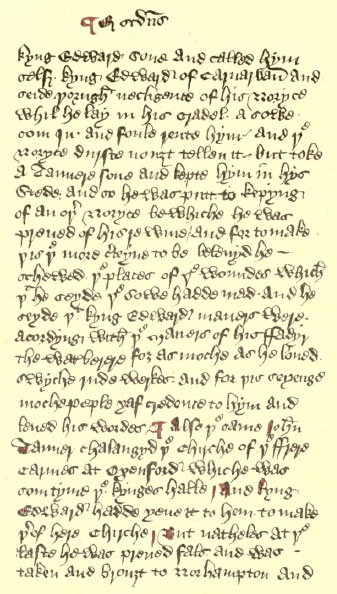 kyng Edward sone and called hym
self kyng Edward of Carnarvan and
seide þorugh necligence of his noryce
whil he lay in his cradol a sowe
com In and foule rente hym and þe
noryce durste nouȝt tellen it but toke
a Tannere sone and kepte hym in hys
stede and so he was putt to kepyng
of an oþer noryce be whiche he was
preued of his rewme and for to make
þis þe more to be leuyd he
schewed þe places of þe woundes which
þt he seyde þe sowe hadde mad and he
seyde þt kyng Edward maners were
acordyng with þe maners of his fadyr
the for as moche as he loued
swyche rude werkes and for þis seyenge
moche peple ȝaf credence to hym and
leued his wordes ¶ also þe same John
Tanner chalangyd þe chirche of þe ffrere
Carmes at Oxenford whiche was
somtyme þe kynges halle and kyng
Edward hadde ȝeue it to hem to make
þer of here chirche But natheles at þe
laste he was preued fals and was
taken and brouȝt to Norhampton and